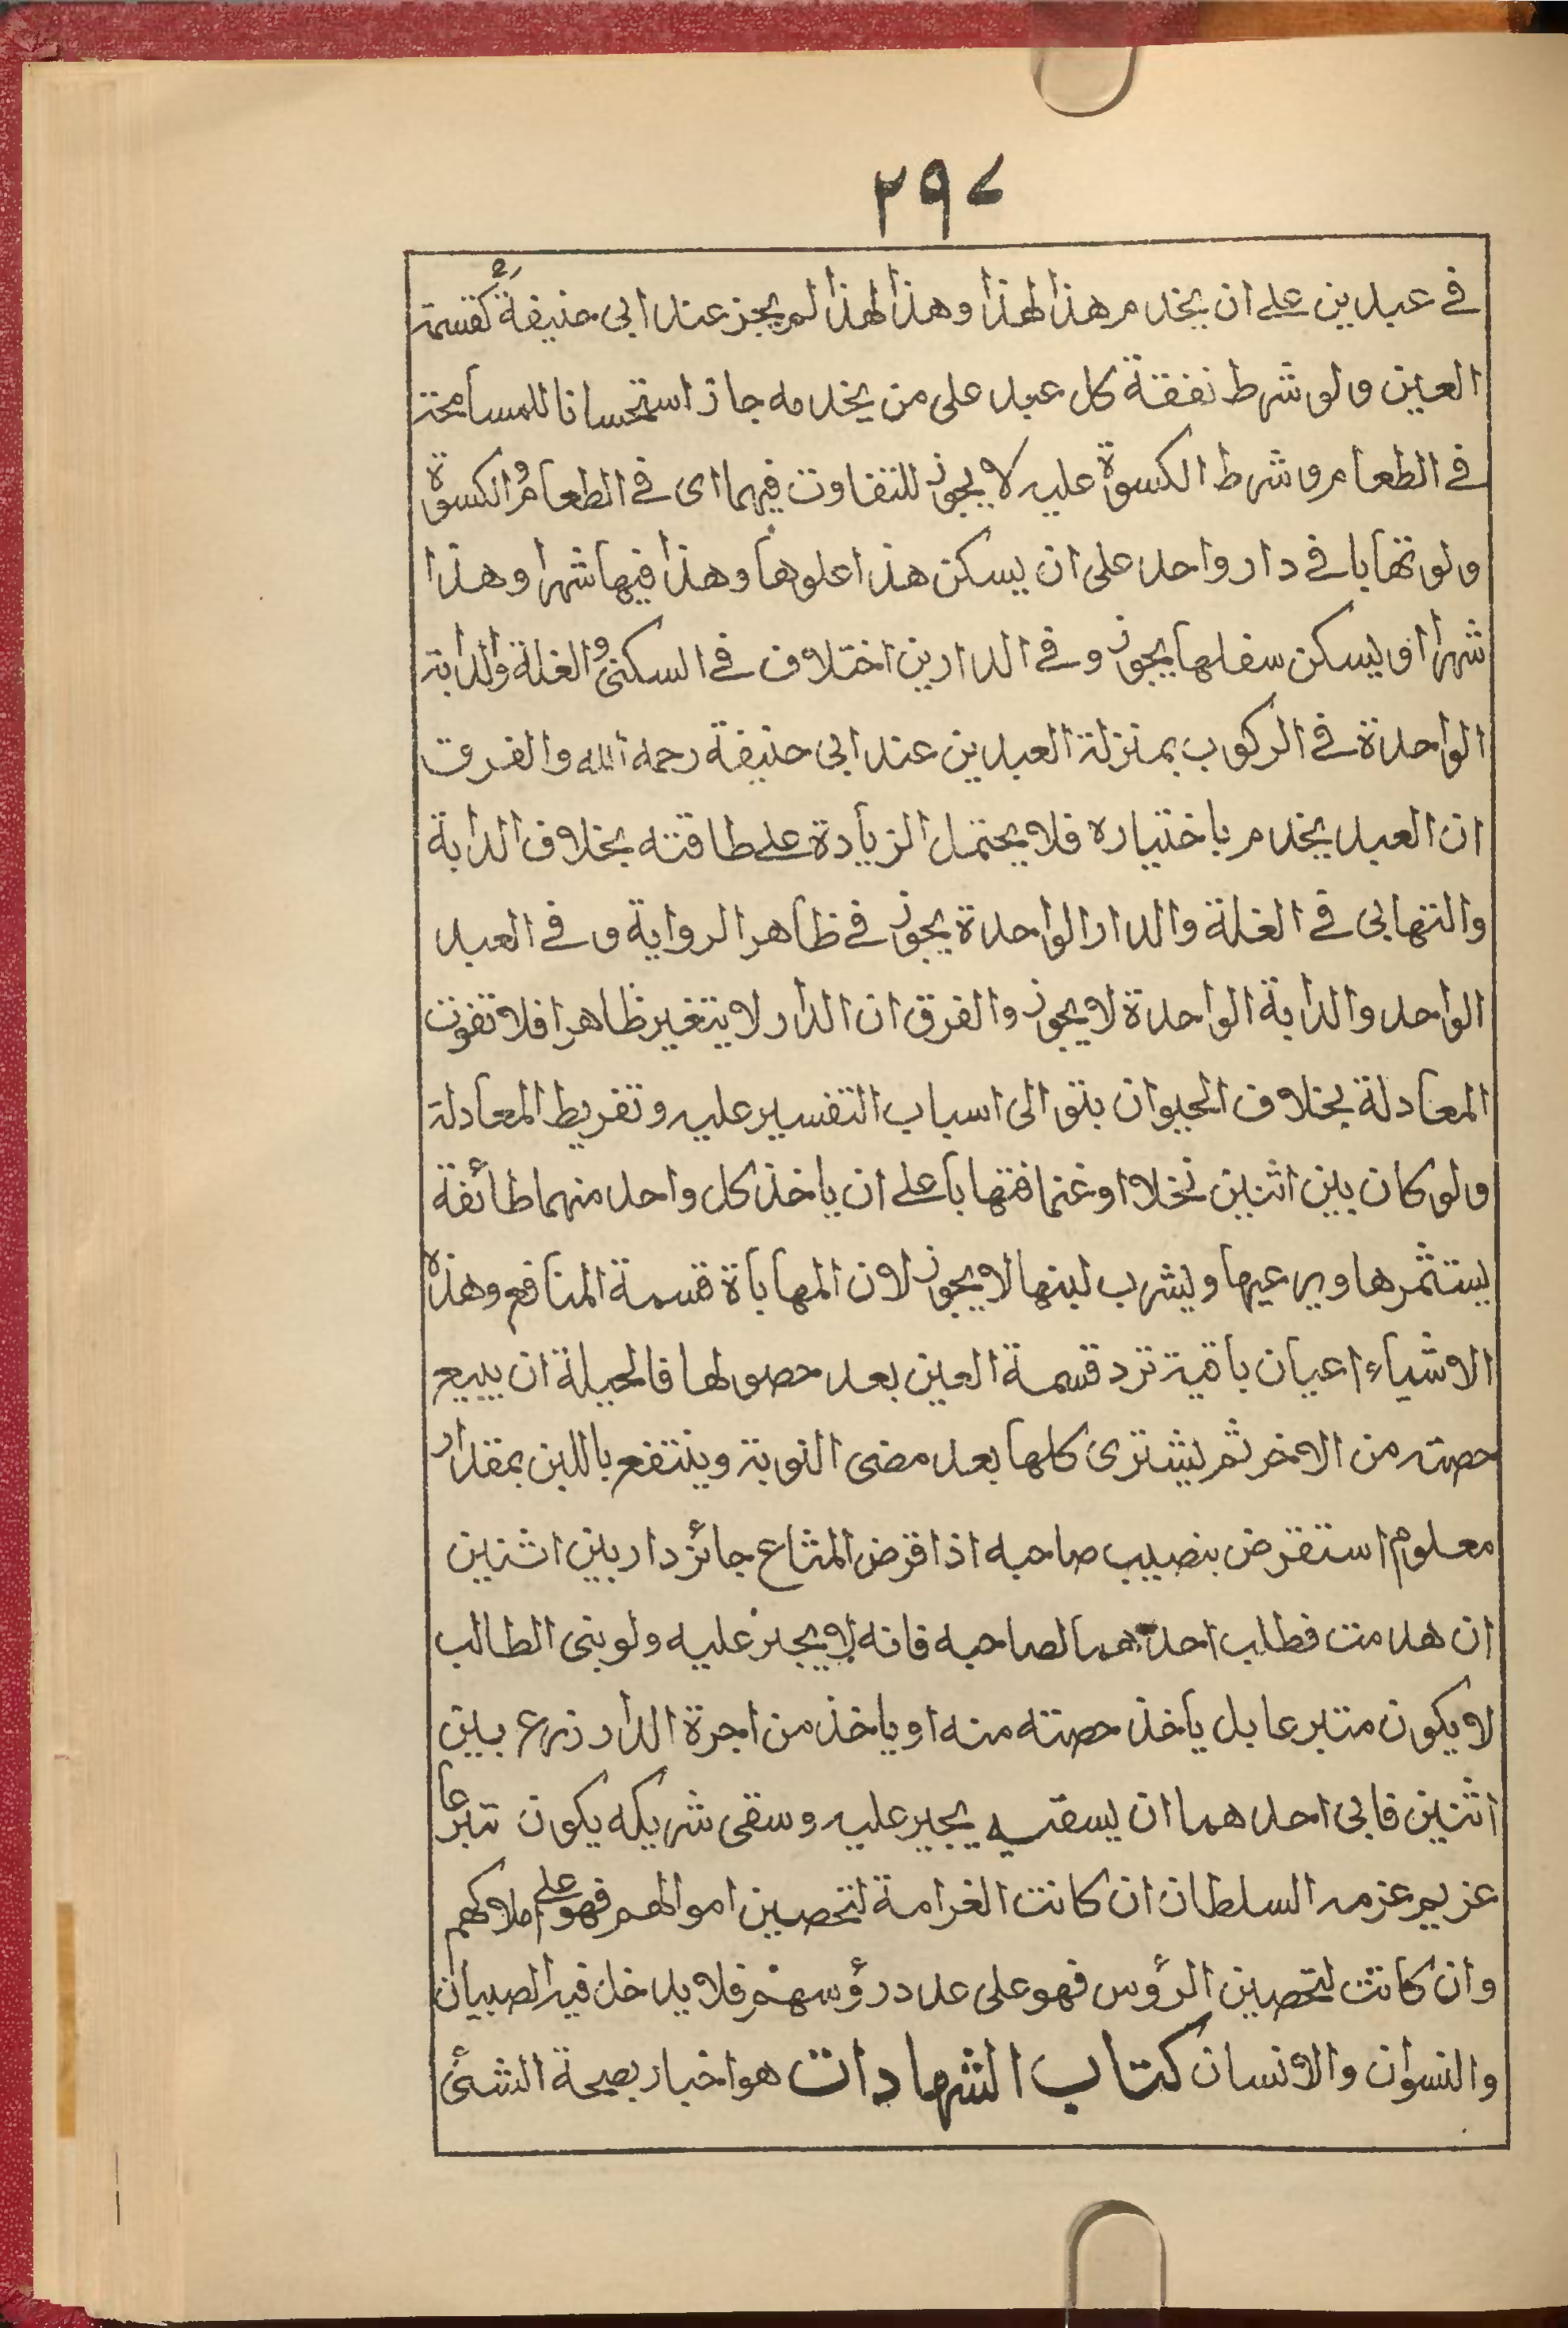 ٢٩٧
في عبدين على ان يخدم هذا لهذا وهذا لهذا لم يجز عند ابى حنيفة رح كقسمة
العين ولو شرط نفقة كل عبد على من يخدمه جاز استحسانا للمسامحة
في الطعام وشرط الكسوة عليه لا يجوز للتفاوت فيهما اى في الطعام والكسوة
ولو تهايا في دار واحد على ان يسكن هذا علوها وهذا فيها شهرا وهذا
شهرا او يسكن سفلها يجوز وفي الدارين اختلاف في السكنى والغلة والدابة
الواحدة في الركوب بمنزلة العبدين عند ابى حنيفة رحمه الله والفرق
ان العبد يخدم باختياره فلا يحتمل الزيادة على طاقته بخلاف الدابة
والتهابى في الغلة والدار الواحدة يجوز في ظاهر الرواية وفي العبد
الواحد والدابة الواحدة لا يجوز والفرق ان الدار لا يتغير ظاهرا فلا تفوت
المعادلة بخلاف الحيوان بتوالى اسباب التفسير عليه وتفريط المعادلة
ولو كان بين اثنين نخلا او غنما فتهايا على ان ياخذ كل واحد منهما طائفة
يستثمرها ويرعيها ويشرب لبنها لا يجوز لان المهاباة قسمة المنافع وهذه
الاشياء اعيان باقية ترد قسمة العين بعد حصولها فالحيلة ان يبيع
حصته من الاخر ثم يشترى كلها بعد مضى النوبة وينتفع باللبن بمقدار
معلوم استقرض بنصيب صاحبه اذا قرض المشاع جائز دار بين اثنين
ان هدمت فطلب احدهما لصاحبه فانه لا يجبر عليه ولو بنى الطالب
لا يكون متبرعا بل ياخذ حصته منه او ياخذ من اجرة الدار زرع بين
اثنين فابى احدهما ان يسقيه يجبر عليه وسقى شريكه يكون تبرعا
عزيم عزمه السلطان ان كانت الغرامة لتحصين اموالهم فهو على املاكهم
وان كانت لتحصين الرؤس فهو على عدد رؤسهم فلا يدخل فيه الصبيان
والنسوان والانسان كتاب الشهادات هو اخبار بصحة الشئ